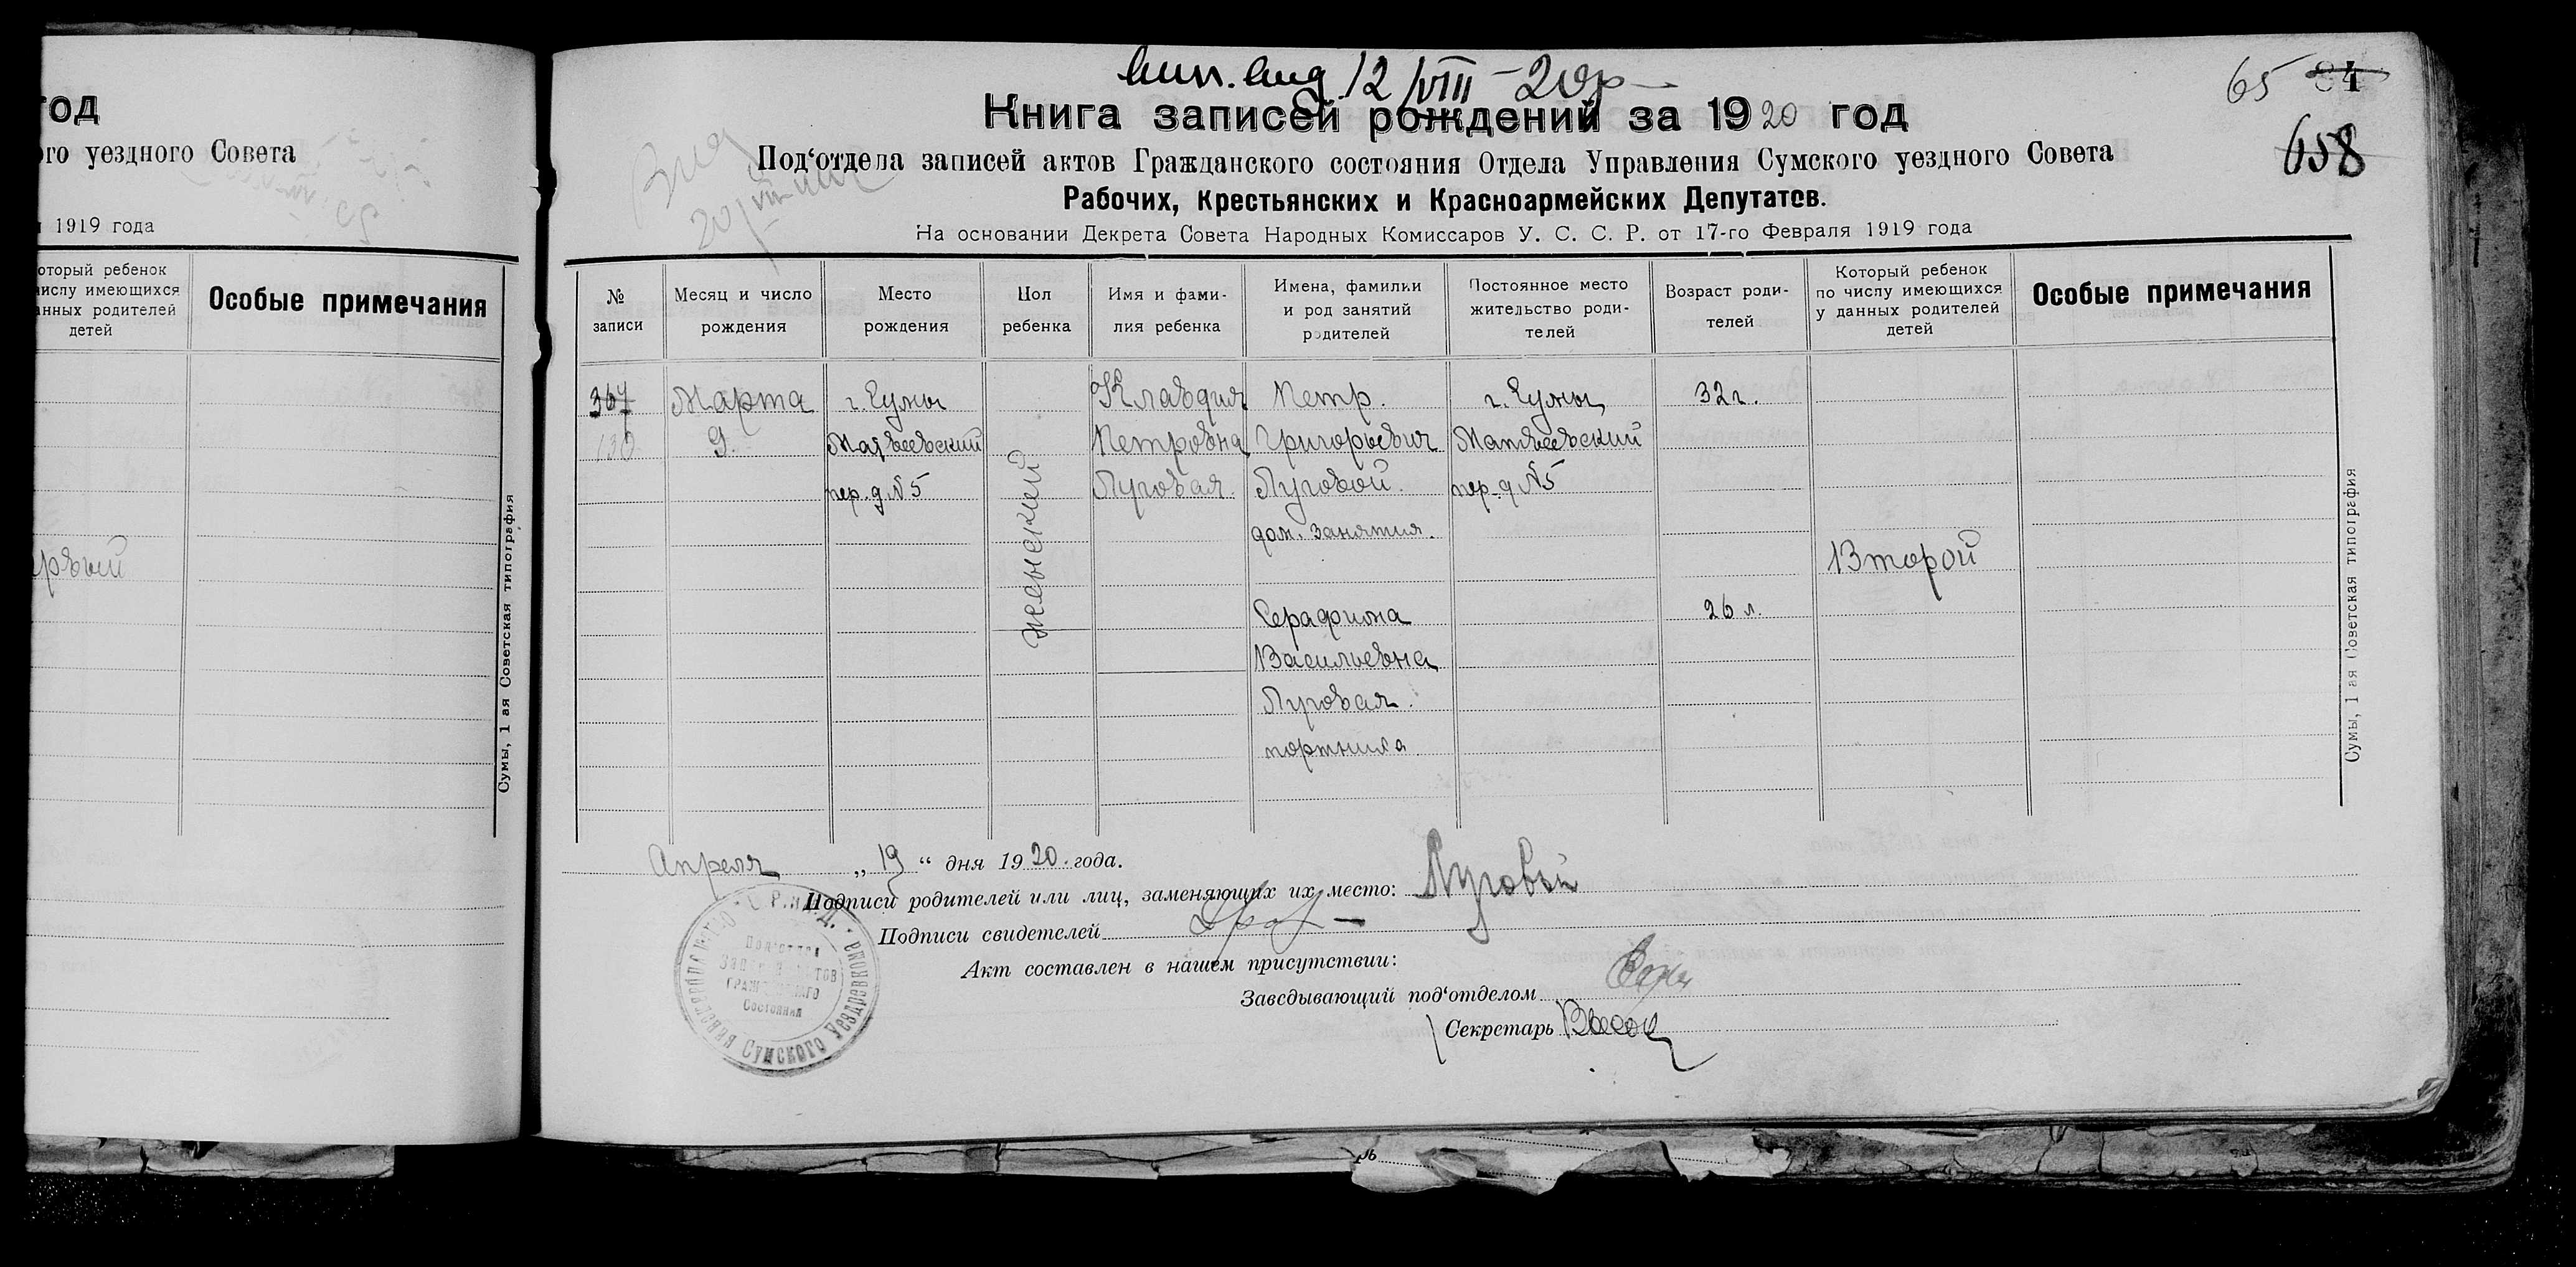 год
ого уездного Совета
1919 года
оторый ребенок
числу имеющихся
анных родителей
детей
Особые примечания
Сумы, 1 ая Советская типография
12/VIII-20
65 84
658
Книга записей рождений за 1920 год
Под‘отдела записей актов Гражданского состояния Отдела Управления Сумского уездного Совета
Рабочих, Крестьянских и Красноармейских Депутатов.
На основании Декрета Совета Народных Комиссаров У. С. С. Р. от 17-го Февраля 1919 года
№ записи
Месяц и число рождения
Место рождения
Пол ребенка
Имя и фами-
лия ребенка
Имена, фамилии
и род занятий
родителей
Постоянное место
жительство роди-
телей
Возраст роди-
телей
Который ребенок
по числу имеющихся
у данных родителей
детей
Особые примечания
367
130
Марта
9.
г. Сумы
Матвеевский
пер. д №5
женский
Клавдия
Петровна
Луговая.
Петр.
Григорьевич
Луговой.
дом. занятия.
Серафима
Васильевна
Луговая.
портниха
г. Сумы,
Матвеевский
пер. д №5
32 г.
26 л.
Второй
Сумы, 1 ая Советская типография
Апреля „19“ дня 1920 года.
Подписи родителей или лиц, заменяющих их место: Луговой
Подписи свидетелей
Акт составлен в нашем присутствии:
Заведывающий под‘отделом
Секретарь
Сумского Уездревкома
Под‘отдел
Записи Актов
Гражданского
Состояния